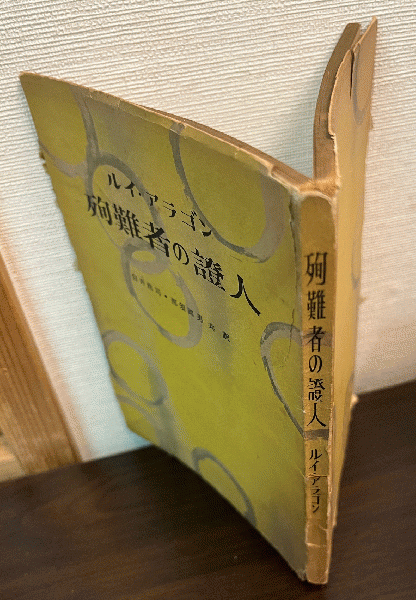 ルイ・アラゴン
殉難者の證人
殉難者の證人
ルイ・アラゴン